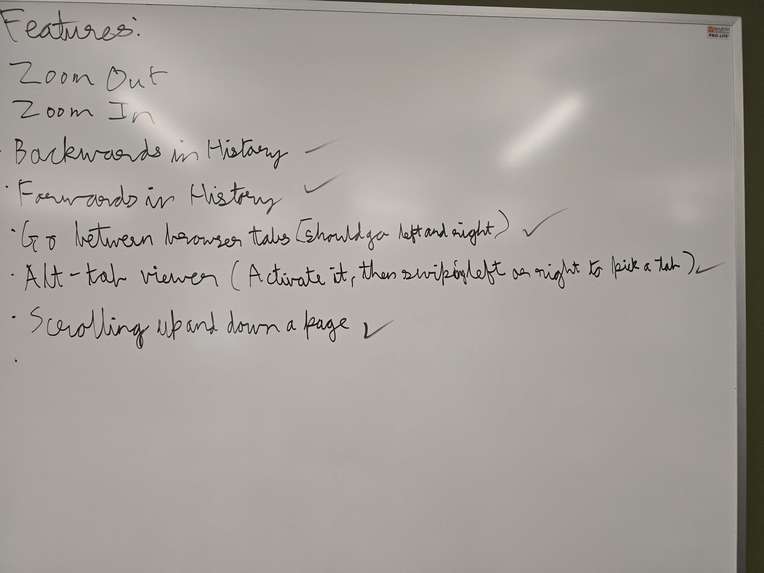 Features:
Zoom Out
Zoom In
· Backwards in History ✓
· Forwards in History ✓
· Go between browser tabs (should go left and right) ✓
· Alt-tab viewer (Activate it, then swiping left or right to pick a tab) ✓
· Scrolling up and down a page ✓
·